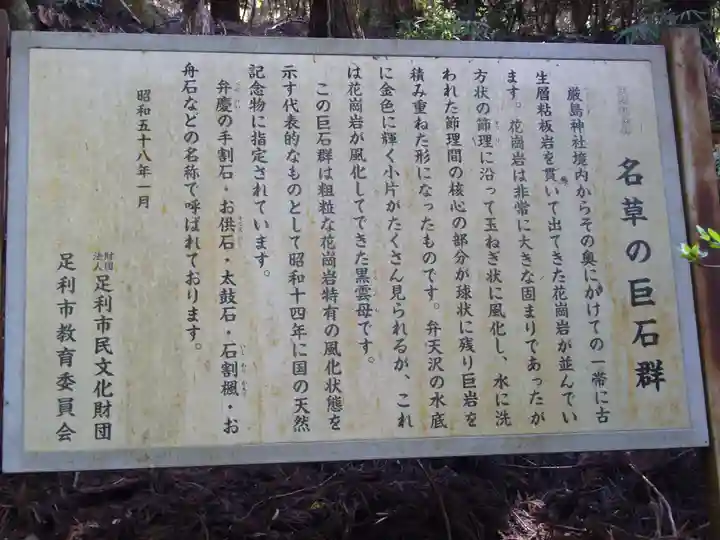 名草の巨石群
厳島神社境内からその奥にかけての一帯に古
生層粘板岩を貫いて出てきた花崗岩が並んでい
ます。花崗岩は非常に大きな固まりであったが
方状の節理に沿って玉ねぎ状に風化し、水に洗
われた節理間の核心の部分が球状に残り巨岩を
積み重ねた形になったものです。弁天沢の水底
に金色に輝く小片がたくさん見られるが、これ
は花崗岩が風化してできた黒雲母です。
この巨石群は粗粒な花崗岩特有の風化状態を
示す代表的なものとして昭和十四年に国の天然
記念物に指定されています。
弁慶の手割石・お供石・太鼓石・石割楓・お
舟石などの名称で呼ばれております。
昭和五十八年一月
財団法人足利市民文化財団
足利市教育委員会